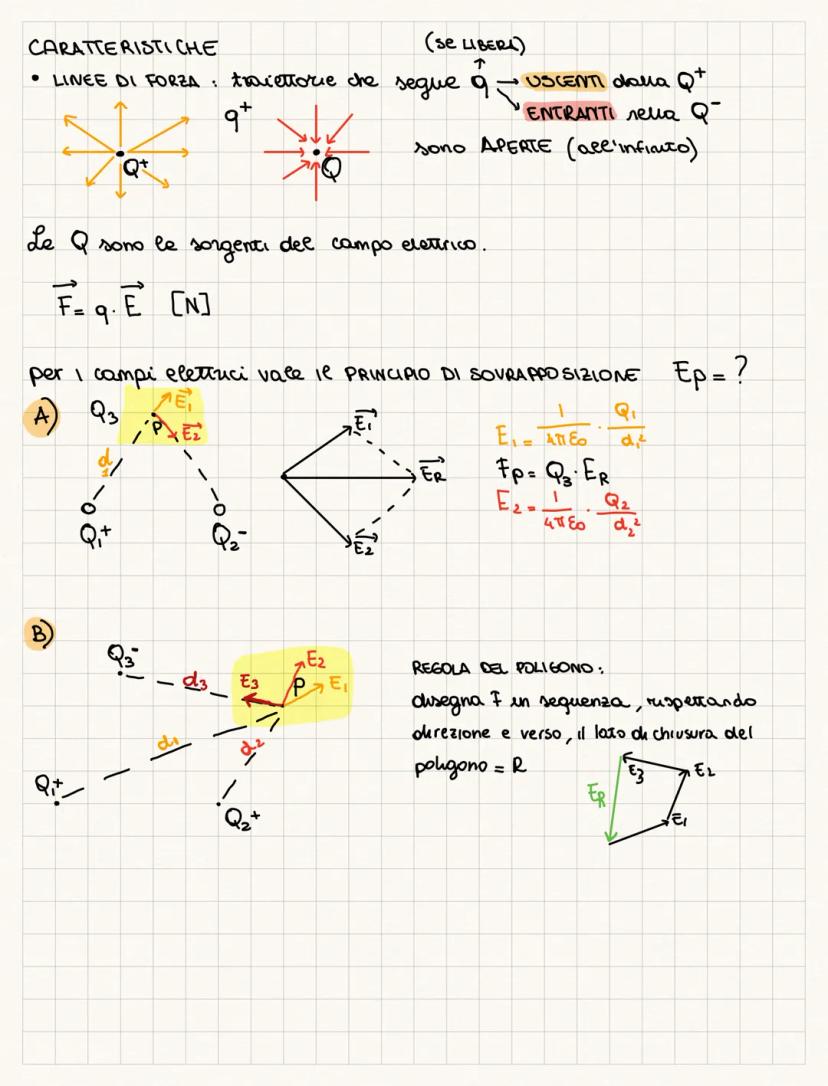 CARATTERISTICHE
(se LIBERA)
• LINEE DI FORZA : traiettorie che segue q → USCENTI dalla Q⁺
ENTRANTI nella Q⁻
q⁺
Q⁺
Q
sono APERTE (all'infinito)
Le Q sono le sorgenti del campo elettrico.
F = q · E [N]
per i campi elettrici vale il PRINCIPIO DI SOVRAPPOSIZIONE Ep = ?
A)
Q₃
E₁
P
E₂
d₁
Q₁⁺
Q₂⁻
E₁
E_R
E₂
E₁ = 1/4πε₀ · Q₁/d₁²
Fp = Q₃ · E_R
E₂ = 1/4πε₀ · Q₂/d₂²
B)
Q₃⁻
d₃
E₃
P
E₂
E₁
d₁
d₂
Q₁⁺
Q₂⁺
REGOLA DEL POLIGONO :
disegna F in sequenza, rispettando
direzione e verso, il lato di chiusura del
poligono = R
E_R
E₃
E₂
E₁